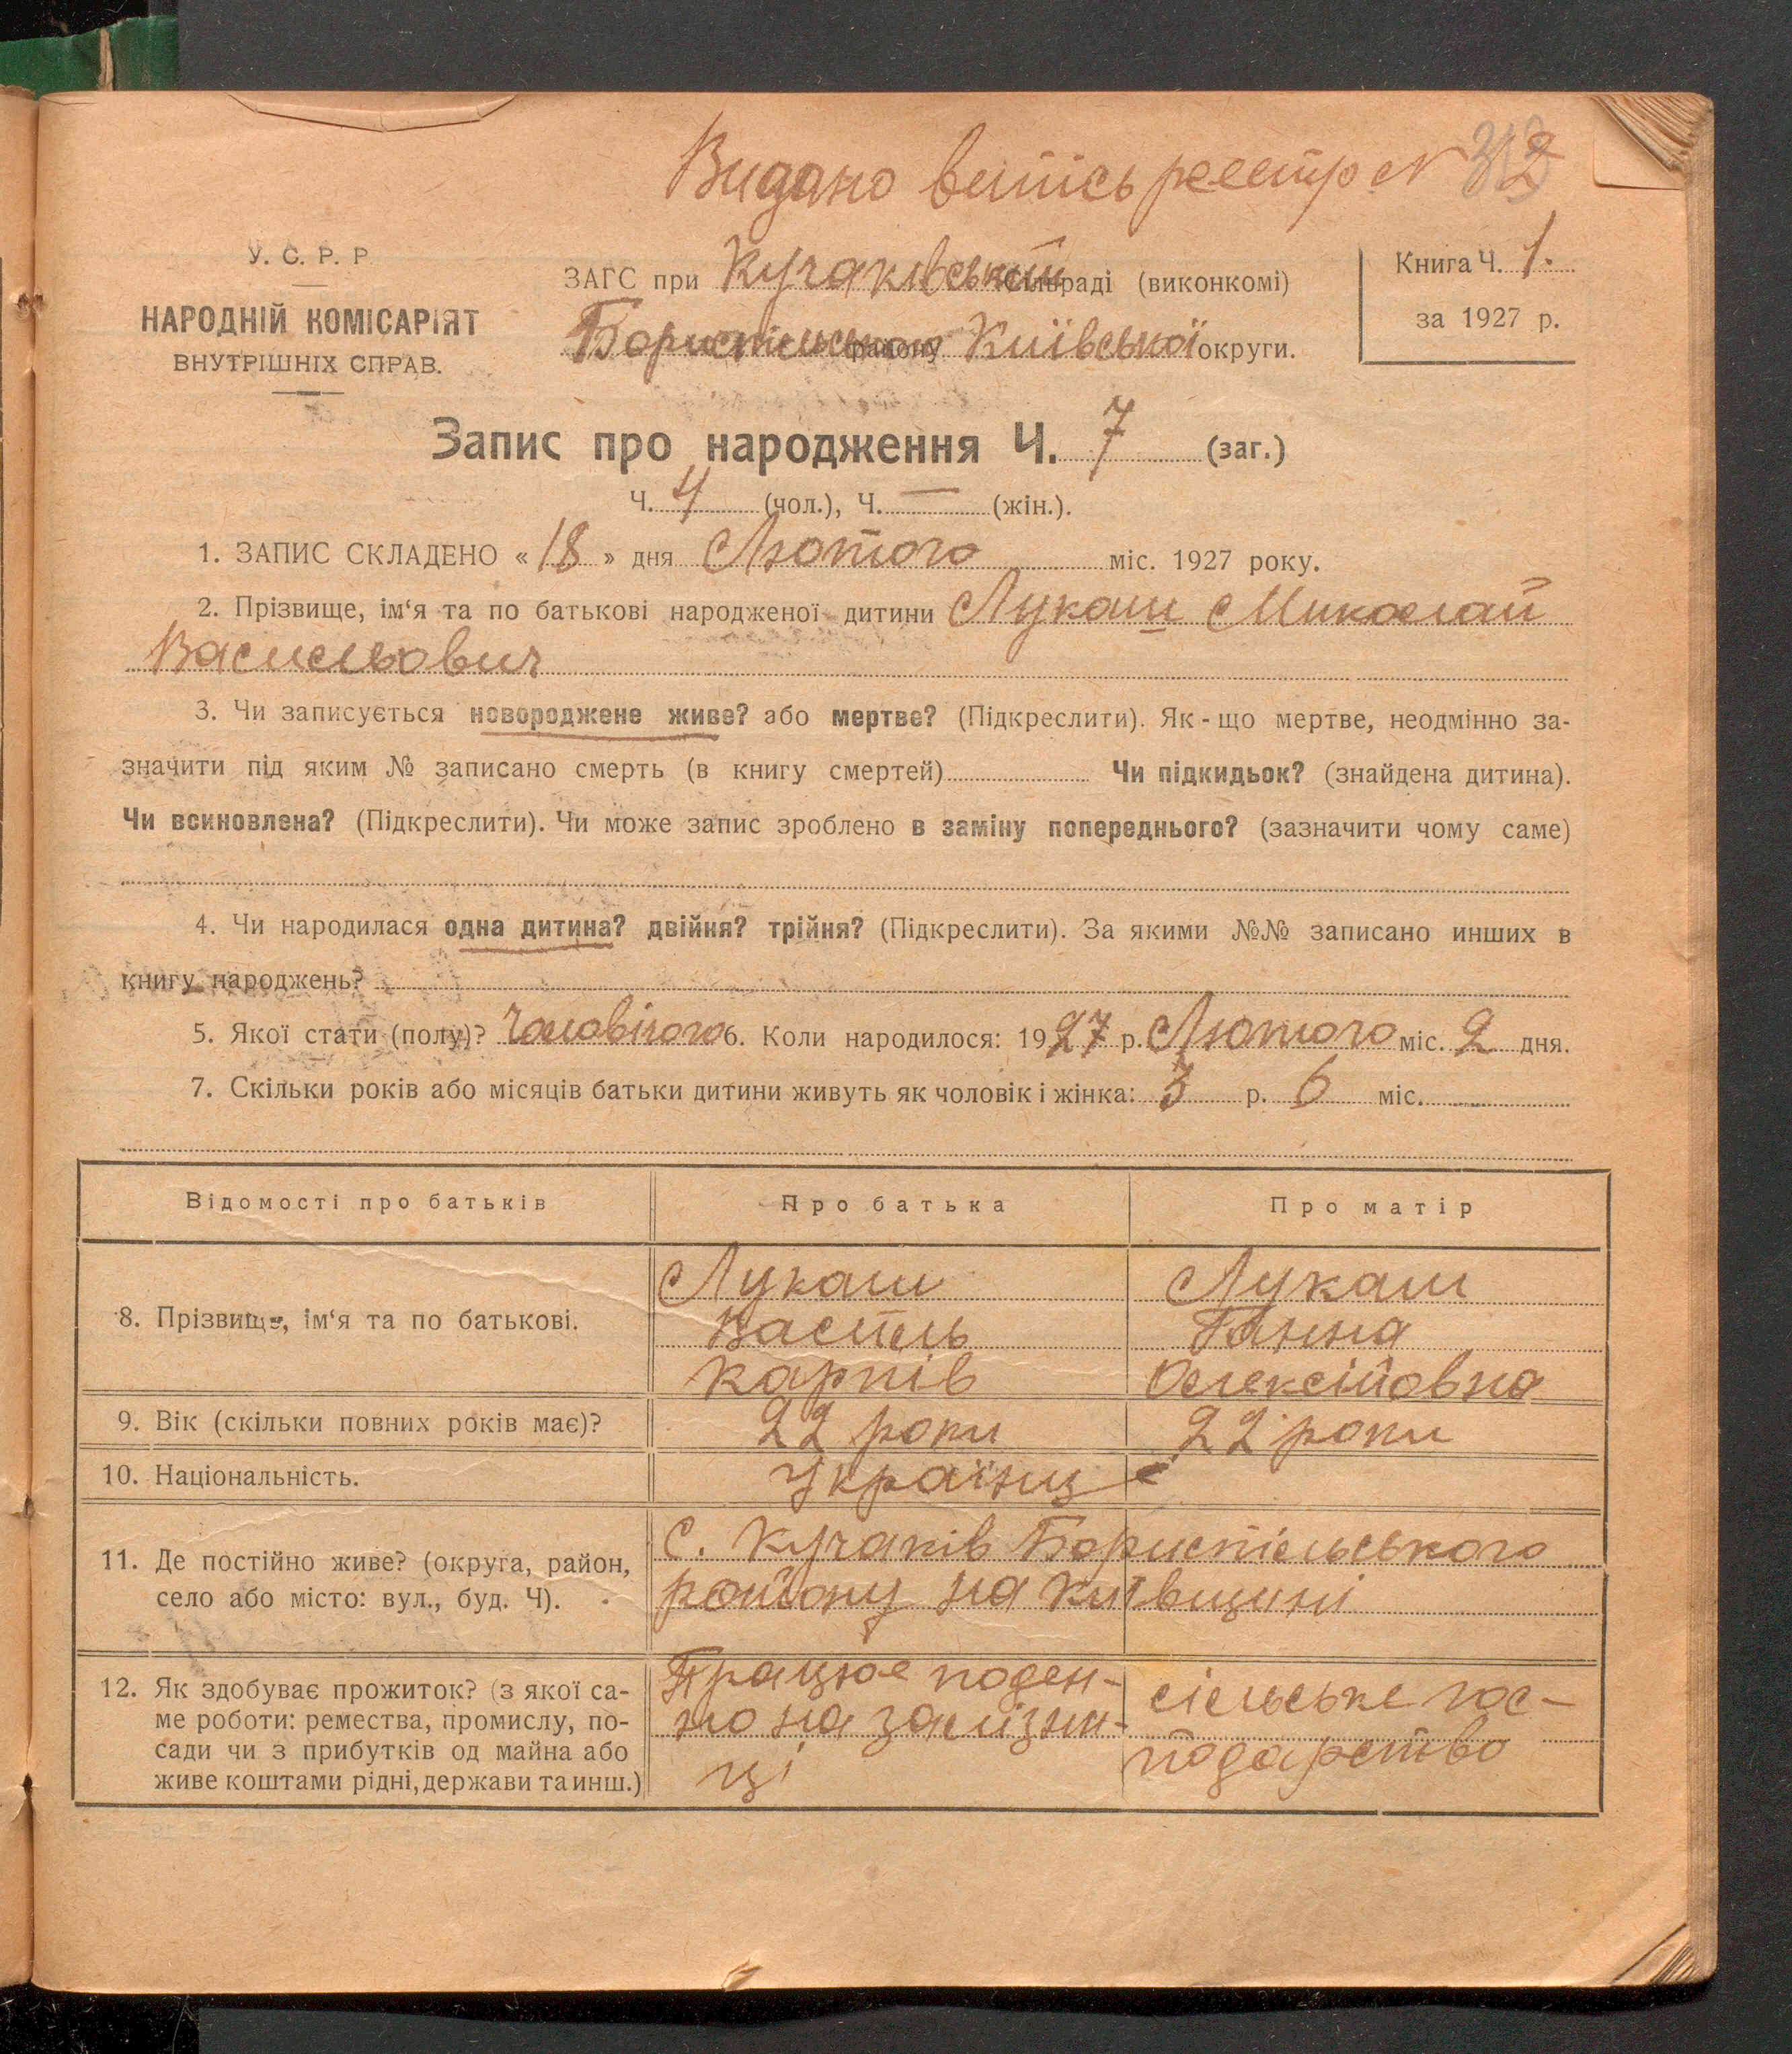 Видано витісь реестр N 32
У. С. Р. Р
НАРОДНІЙ КОМІСАРІЯТ
ВНУТРІШНІХ СПРАВ.
ЗАГС при Кучаківській сільраді (виконкомі)
Бориспільського району Київської округи.
Книга Ч. 1.
за 1927 р.
Запис про народження Ч. 7 (заг.)
Ч. 4 (чол.), Ч. — (жін.).
1. ЗАПИС СКЛАДЕНО «18» дня Лютого міс. 1927 року.
2. Прізвище, ім‘я та по батькові народженої дитини Лукаш Миколай
Васильович
3. Чи записується новороджене живе? або мертве? (Підкреслити). Як-що мертве, неодмінно за-
значити під яким № записано смерть (в книгу смертей) Чи підкидьок? (знайдена дитина).
Чи всиновлена? (Підкреслити). Чи може запис зроблено в заміну попереднього? (зазначити чому саме)
4. Чи народилася одна дитина? двійня? трійня? (Підкреслити). За якими №№ записано инших в
книгу народжень?
5. Якої стати (полу)? Чоловічого 6. Коли народилося: 1927 р. Лютого міс. 2 дня.
7. Скільки років або місяців батьки дитини живуть як чоловік і жінка: 3 р. 6 міс.
Відомості про батьків Про батька Про матір
8. Прізвище, ім‘я та по батькові.
Лукаш
Василь
Карпів
Лукаш
Ганна
Олексійовна
9. Вік (скільки повних років має)? 22 роки 22 роки
10. Національність. Українці
11. Де постійно живе? (округа, район,
село або місто: вул., буд. Ч).
С. Кучаків Бориспільського
району на Київщині
12. Як здобуває прожиток? (з якої са-
ме роботи: ремества, промислу, по-
сади чи з прибутків од майна або
живе коштами рідні, держави та инш.)
Працює поден-
но на залізни-
ці
сільське гос-
подарство